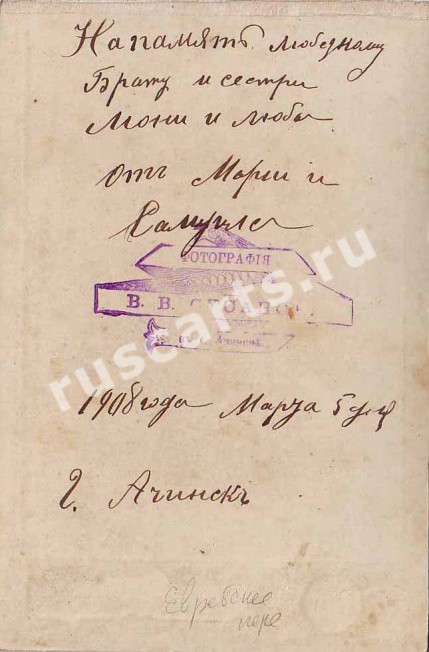 На память любезному
Брату и сестри
Мони и Люба
отъ Марии и
Самуила
ФОТОГРАФІЯ
В. В.
въ г. Ачинскѣ
ruscarts.ru
1908 года Марта 5 дня
Г. Ачинскъ
Еврейское